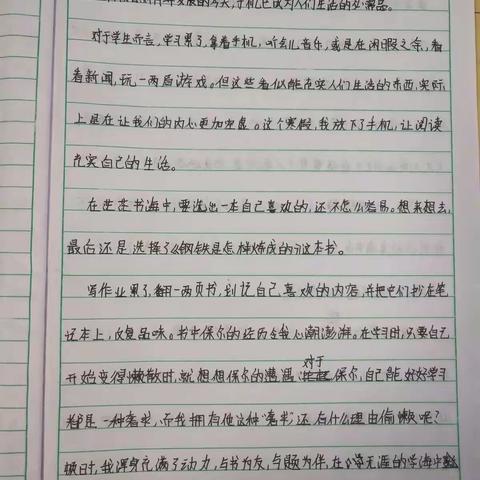 发展的今天,手机已成为人们生活的必需品。
对于学生而言,学习累了,拿着手机,听会儿音乐,或是在闲暇之余,看
看新闻,玩一两局游戏。但这些看似能充实人们生活的东西,实际
上是在让我们的内心更加空虚。这个寒假,我放下了手机,让阅读
充实自己的生活。
在茫茫书海中,要选出一本自己喜欢的,还不怎么容易。想来想去,
最后还是选择了《钢铁是怎样炼成的》这本书。
写作业累了,翻一两页书,标记自己喜欢的内容,并把它们抄在笔
记本上,反复品味。书中保尔的经历令我心潮澎湃。在学习时,只要自己
开始变得懒散时,就想想保尔的遭遇,对于保尔,自己能好好学习
都是一种奢求,而我拥有他这种“奢求”还有什么理由偷懒呢?
顿时,我浑身充满了动力,与书为友,与题为伴,在学无涯的学海中